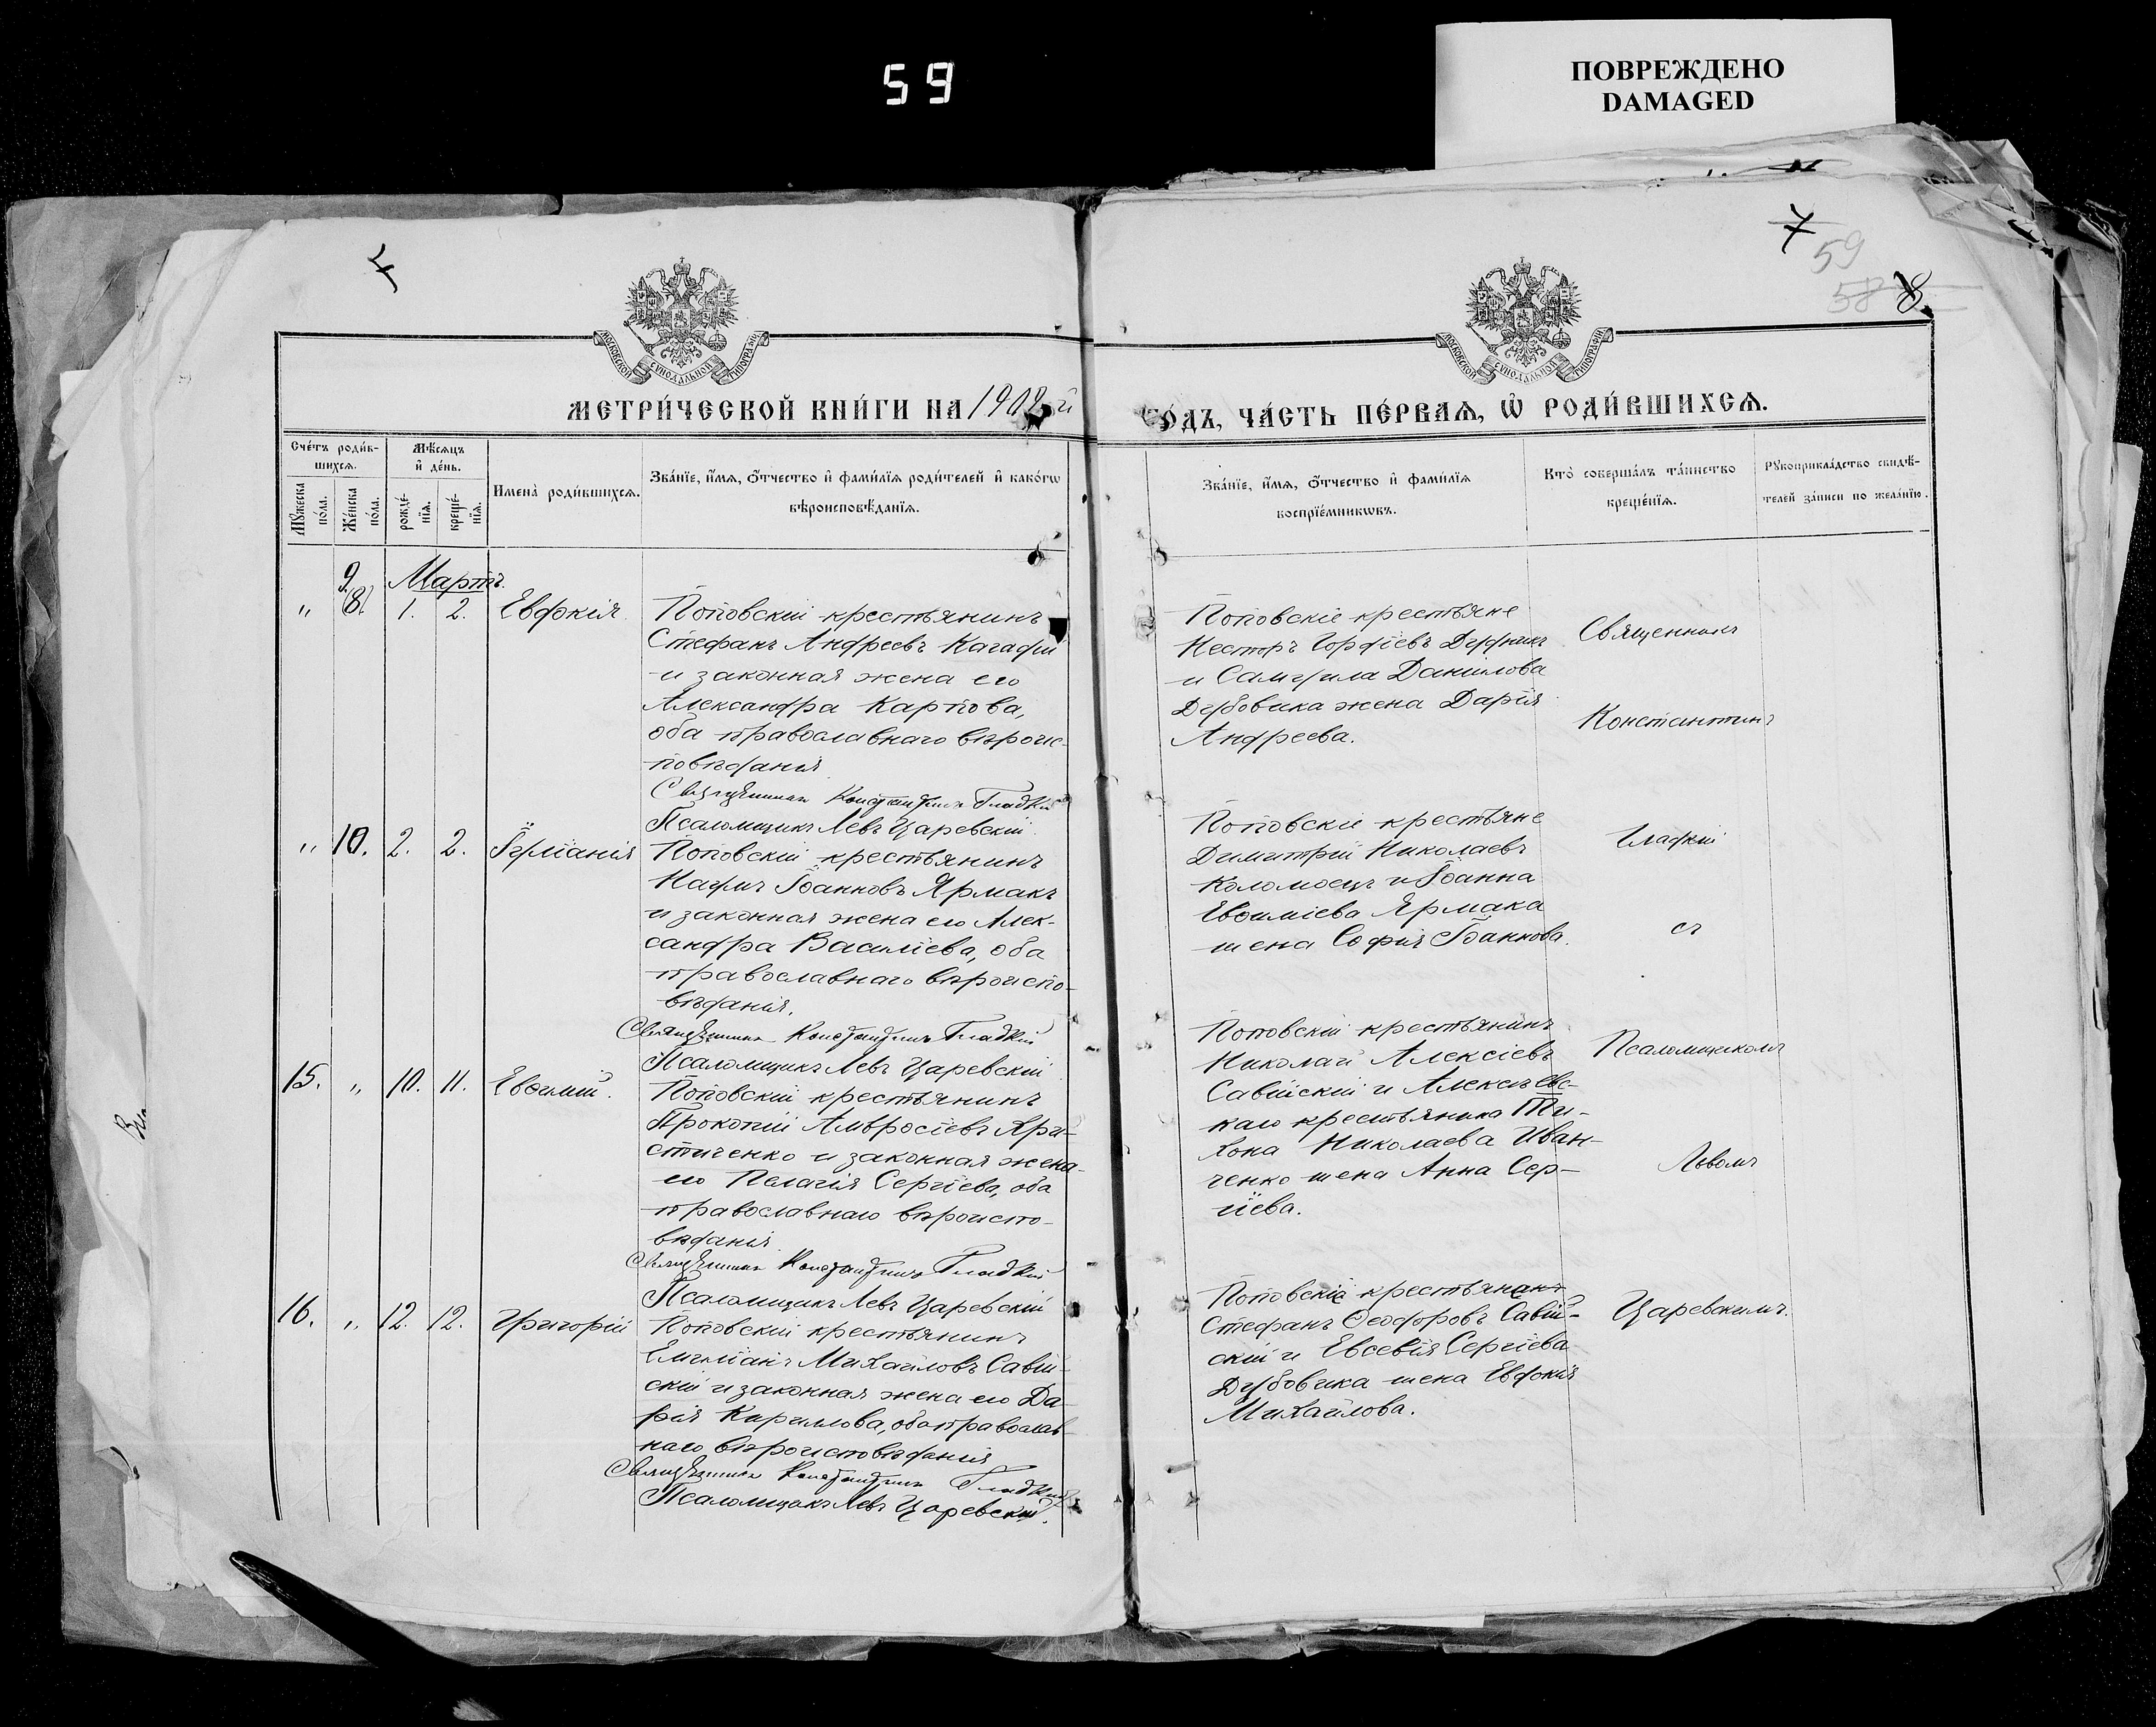 59
ПОВРЕЖДЕНО
DAMAGED
7
7
59
58
8.
МОСКОВСКОЙ СѴНОДАЛЬНОЙ ТИПОГРАФІИ
МОСКОВСКОЙ СѴНОДАЛЬНОЙ ТИПОГРАФІИ
МЕТРИ́ЧЕСКОЙ КНИ́ГИ НА 1902й
ГО́ДЪ, ЧА́СТЬ ПЕ́РВАѦ, Ѡ҆ РОДИ́ВШИХСѦ.
Сче́тъ роди́в-
шихсѧ.
Мꙋ́жеска по́ла.
Же́нска по́ла.
Мѣ́сѧцъ
и҆ де́нь.
рожде́-
нїѧ.
креще́-
нїѧ.
Имена̀ роди́вшихсѧ.
Зва́нїе, и҆́мѧ, ѻ҆́тчество и҆ фами́лїѧ роди́телей и҆ како́гѡ
вѣроисповѣ́данїѧ.
Зва́нїе, и҆́мѧ, ѻ҆́тчество и҆ фами́лїѧ
воспрїе́мникѡвъ.
Кто̀ соверша́лъ та́инство
креще́нїѧ.
Рꙋкоприкла́дство свидѣ́-
телей за́писи по жела́нїю.
Мартъ.
9.
" 8. 1. 2. Евдокія
Поповскій крестьянинъ
Стефанъ Андреевъ
и законная жена его
Александра Карпова,
оба православнаго вѣроис-
повѣданія
Священникъ Константинъ Гладкій
Псаломщикъ Левъ Царевскій
Поповскіе крестьяне
Несторъ Гордіевъ
и Самуила Даніилова
Дубовика жена Дарія
Андреева.
Священникъ
Константинъ
" 10. 2. 2. Іуліанія
Поповскій крестьянинъ
Іоанновъ Ярмакъ
и законная жена его Алек-
сандра Василіева, оба
православнаго вѣроиспо-
вѣданія.
Священникъ Константинъ Гладкій
Псаломщикъ Левъ Царевскій
Поповскіе крестьяне
Димитрій Николаевъ
Коломоецъ и Іоанна
Евѳиміева Ярмака
жена Софія Іоаннова.
Гладкій
съ
15. " 10. 11. Евѳимій.
Поповскій крестьянинъ
Прокопій Амвросіевъ Хри-
стиченко и законная жена
его Пелагія Сергіева, оба
православнаго вѣроиспо-
вѣданія
Священникъ Константинъ Гладкій
Псаломщикъ Левъ Царевскій
Поповскій крестьянинъ
Николай Алексіевъ
Савійскій и Алексѣевс-
каго крестьянина Ти-
хона Николаева Иван-
ченко жена Анна Сер-
гіева.
Псаломщикомъ
Львомъ
16. " 12. 12. Григорій
Поповскій крестьянинъ
Емиліанъ Михайловъ Савій-
скій и законная жена его Да-
рія Кириллова, оба православ
наго вѣроисповѣданія
Священникъ Константинъ Гладкій
Псаломщикъ Левъ Царевскій.
Стефанъ Ѳеодоровъ Савій-
скій и Евсевія Сергіева
Дубовика жена Евдокія
Михайлова.
Царевскимъ.